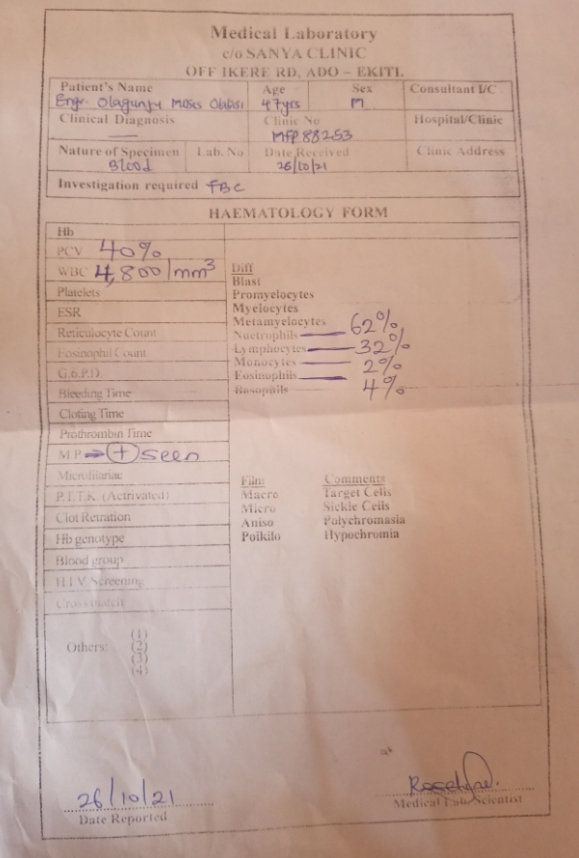 Medical Laboratory
c/o SANYA CLINIC
OFF IKERE RD, ADO – EKITI.
Patient's Name Age Sex Consultant I/C
Engr. Olagunju Moses 47yrs M
Clinical Diagnosis Clinic No Hospital/Clinic
— MFP 88253
Nature of Specimen Lab. No Date Received Clinic Address
Blood 26/10/21
Investigation required FBC
HAEMATOLOGY FORM
Hb
PCV 40%
WBC 4,800/mm³
Platelets
ESR
Reticulocyte Count
Eosinophil Count
G.6.P.D.
Bleeding Time
Cloting Time
Prothrombin Time
M.P → (+) seen
Microfilariae
P.T.T.K (Actrivated)
Clot Retration
Hb genotype
Blood group
H.I.V. Screening
Crossmatch
Others: (1)
(2)
(3)
(4)
Diff
Blast
Promyelocytes
Myelocytes
Metamyelocytes
Nuetrophils — 62%
Lymphocytes — 32%
Monocytes — 2%
Eosinophils — 4%
Basophils
Film Comments
Macro Target Cells
Micro Sickle Cells
Aniso Polychromasia
Poikilo Hypochromia
26/10/21
Date Reported Medical Lab. Scientist